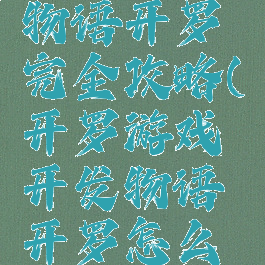 物语开罗
完全攻略(
开罗游戏
开发物语
开罗怎么